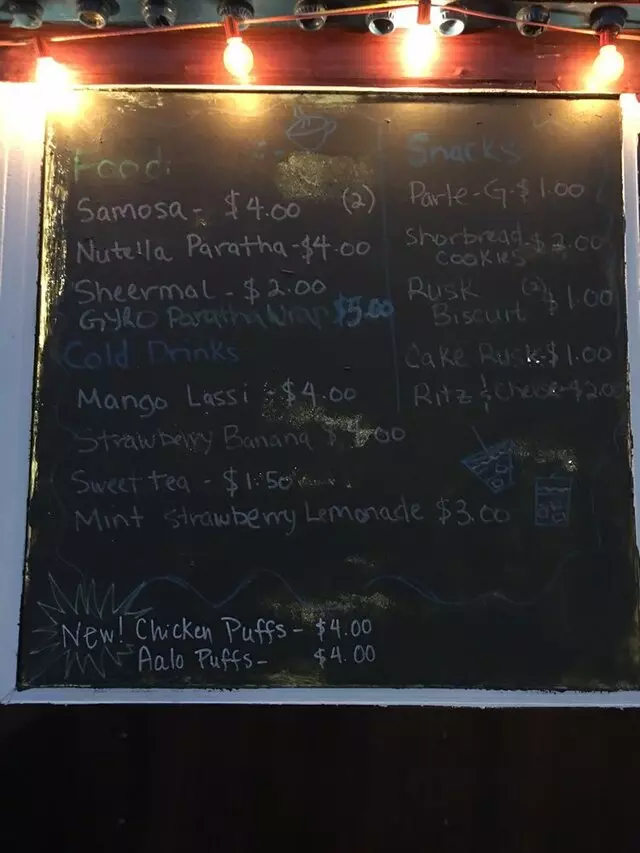 Food:
Samosa - $4.00 (2)
Nutella Paratha - $4.00
Sheermal - $2.00
GYRO Paratha Wrap $5.00
Cold Drinks
Mango Lassi - $4.00
Strawberry Banana $4.00
Sweet tea - $1.50
Mint Strawberry Lemonade $3.00
Snacks
Parle-G- $1.00
Shorbread - $2.00
COOKIES
Rusk (2) $1.00
Biscuit
Cake Rusk - $1.00
Ritz & Cheese - $2.0
New! Chicken Puffs - $4.00
Aalo Puffs - $4.00